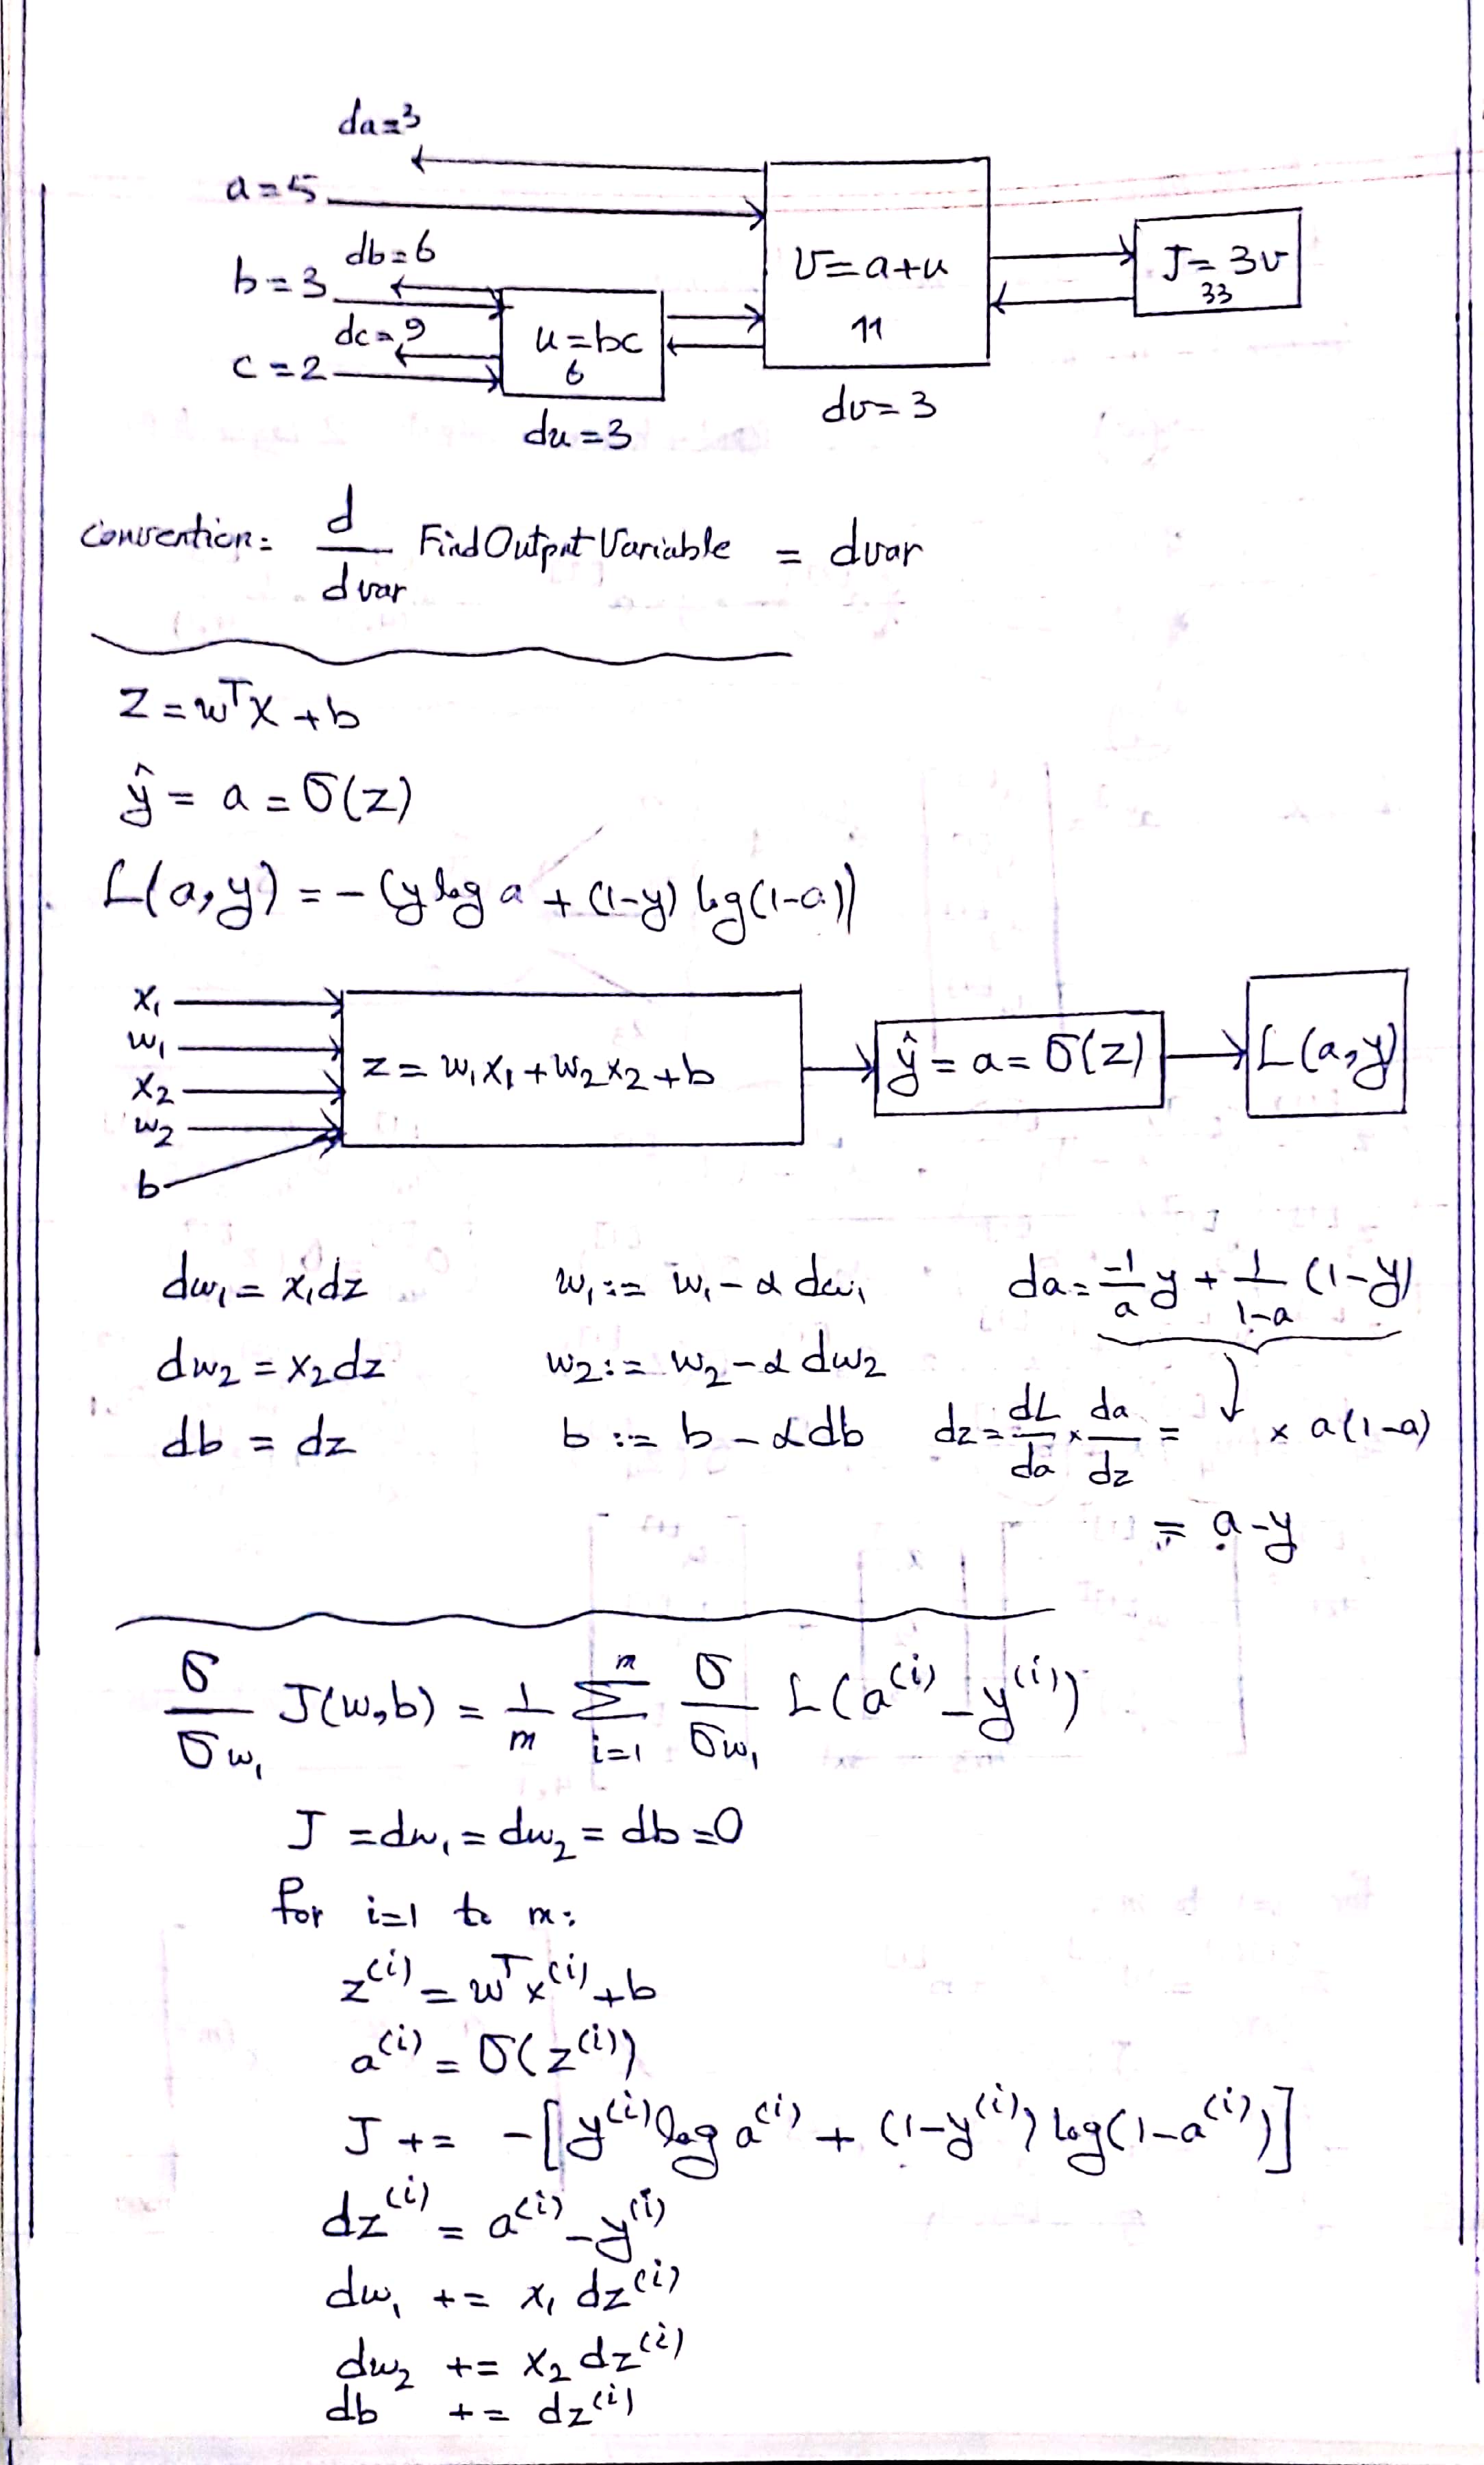 da=3
a=5
b=3 db=6
dc=9
c=2
u=bc
6
du=3
v=a+u
11
dv=3
J=3v
33
Convention: d/dvar FindOutputVariable = dvar
z=wᵀx+b
ŷ = a = σ(z)
L(a,y) = -(y log a + (1-y) log(1-a))
x₁
w₁
x₂
w₂
b
z = w₁x₁+w₂x₂+b
ŷ = a = σ(z)
L(a,y)
dw₁ = x₁dz w₁ := w₁ - α dw₁ da = -1/a y + 1/1-a (1-y)
dw₂ = x₂dz w₂ := w₂ - α dw₂
db = dz b := b - αdb dz = dL/da × da/dz = ↓ × a(1-a)
= a-y
σ/σw₁ J(w,b) = 1/m Σ m i=1 σ/σw₁ L(a⁽ⁱ⁾ - y⁽ⁱ⁾)
J = dw₁ = dw₂ = db = 0
for i=1 to m:
z⁽ⁱ⁾ = wᵀx⁽ⁱ⁾+b
a⁽ⁱ⁾ = σ(z⁽ⁱ⁾)
J += -[y⁽ⁱ⁾log a⁽ⁱ⁾ + (1-y⁽ⁱ⁾) log(1-a⁽ⁱ⁾)]
dz⁽ⁱ⁾ = a⁽ⁱ⁾ - y⁽ⁱ⁾
dw₁ += x₁ dz⁽ⁱ⁾
dw₂ += x₂ dz⁽ⁱ⁾
db += dz⁽ⁱ⁾